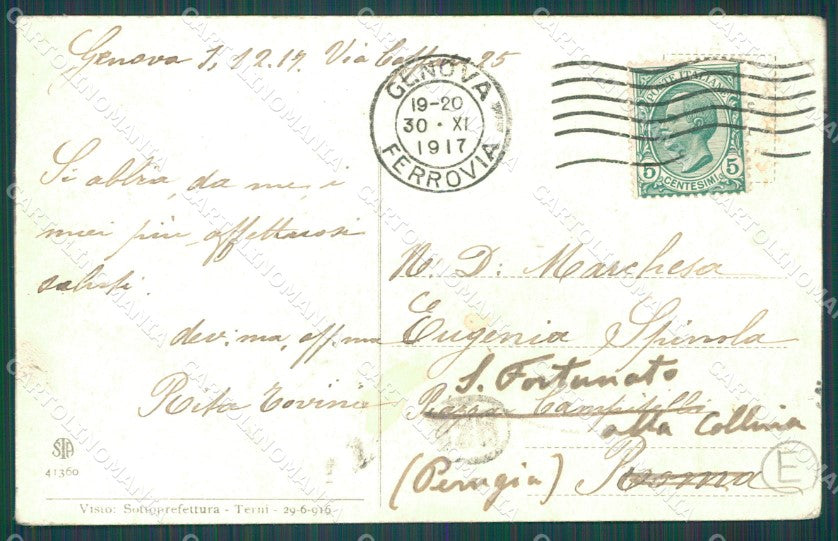 Genova 1, 12.17. Via 25
GENOVA
19-20
30 · XI
1917
FERROVIA
POSTE ITALIANE
5 5
CENTESIMI
Si abbia, da me, i
miei più affettuosi
saluti.
dev.ma, aff.ma
Rita
N. D. Marchesa
Eugenia Spinola
S. Fortunato
Campitelli
alla Collina
(Perugia) Roma
E
STA
41360
Visto: Sottoprefettura - Terni - 29-6-916
CARTOLINOMANIA